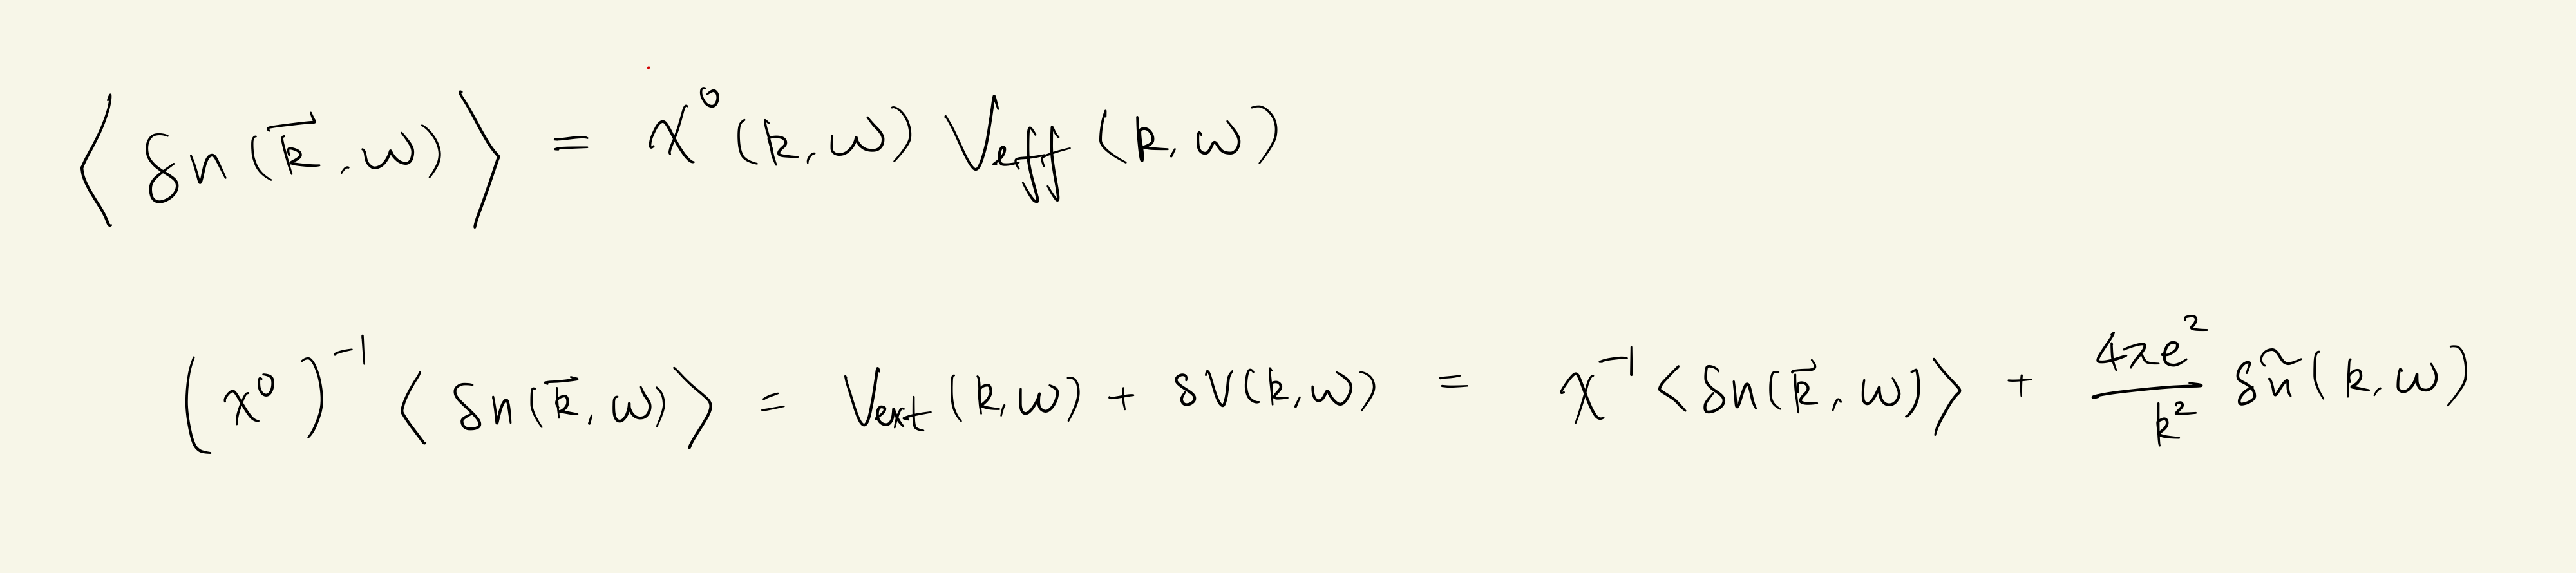 ⟨δn(k⃗,ω)⟩ = χ⁰(k,ω) V_eff(k,ω)
(χ⁰)⁻¹ ⟨δn(k⃗,ω)⟩ = V_ext(k,ω) + δV(k,ω) = χ⁻¹⟨δn(k⃗,ω)⟩ + \frac{4πe²}{k²} δñ(k,ω)